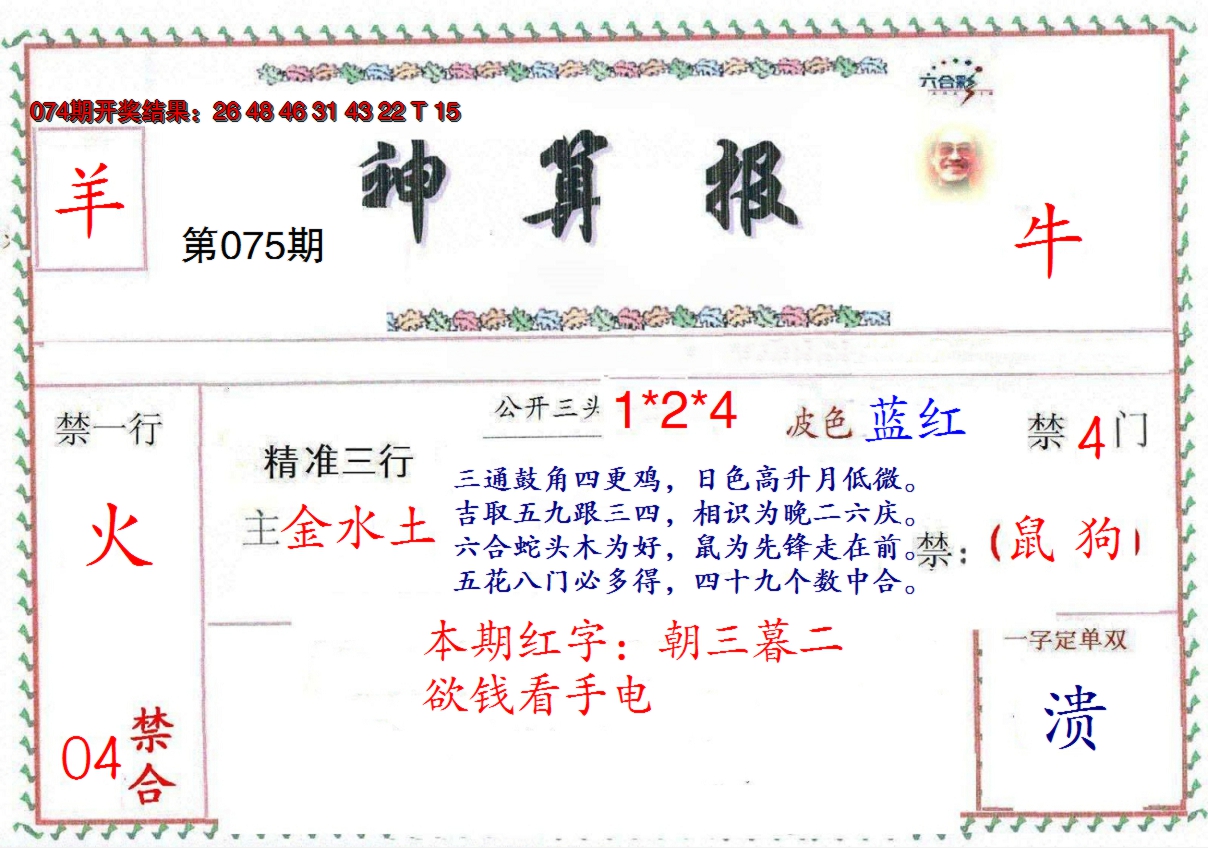 六合彩
074期开奖结果：26 48 46 31 43 22 T 15
羊
神算报
第075期
牛
禁一行
火
04
禁合
公开三头 1*2*4
波色 蓝红
禁4门
精准三行
主金水土
三通鼓角四更鸡，日色高升月低微。
吉取五九跟三四，相识为晚二六庆。
六合蛇头木为好，鼠为先锋走在前。
五花八门必多得，四十九个数中合。
禁：（鼠 狗）
本期红字：朝三暮二
欲钱看手电
一字定单双
溃